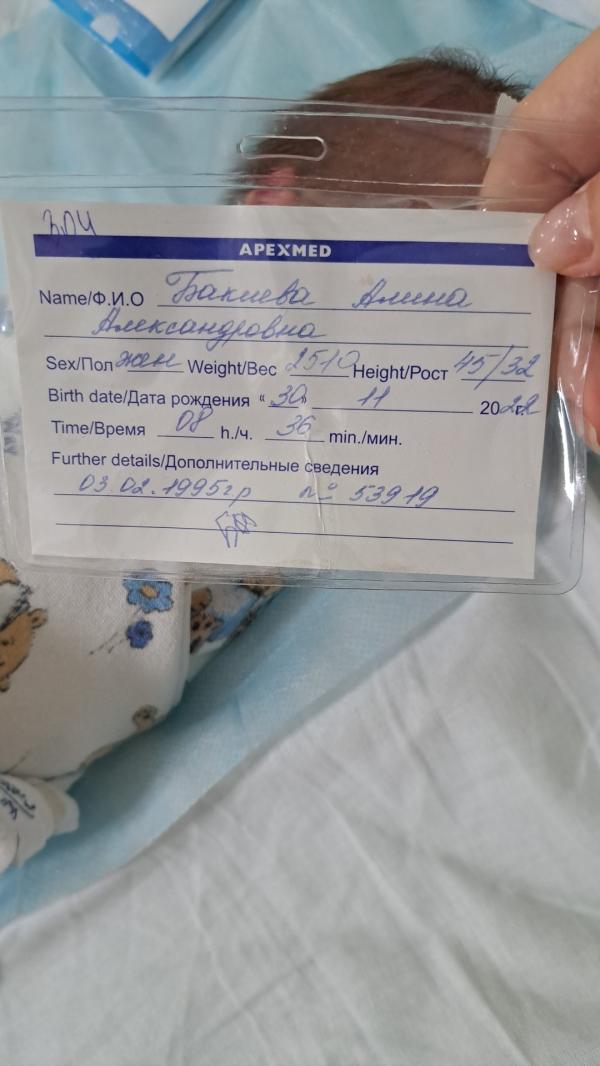 APEXMED
Name/Ф.И.О Бакиева Алина
Александровна
Sex/Пол жен Weight/Вес 2510 Height/Рост 45/32
Birth date/Дата рождения "30" 11 2022г.
Time/Время 08 h./ч. 36 min./мин.
Further details/Дополнительные сведения
03.02.1995гр № 53919